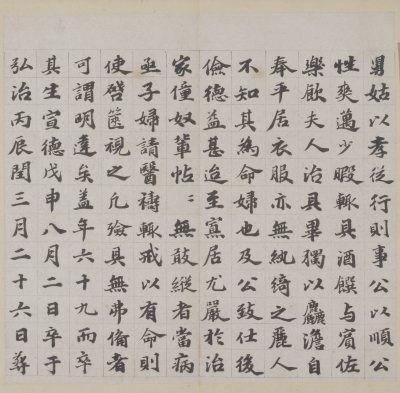 舅姑以孝從行則事公以順公
性爽邁少暇輒具酒饌与賓佐
樂飲夫人治具畢獨以麤澹自
奉平居衣服亦無紈綺之麗人
不知其為命婦也及公致仕後
儉德益甚迨至寡居尤嚴於治
家僮奴輩帖〻無敢縱者當病
亟子婦請醫禱輒戒以有命則
使啓篋視之凡殮具無弗備者
可謂明達矣盖年六十九而卒
其生宣德戊申八月二日卒于
弘治丙辰閏三月二十六日